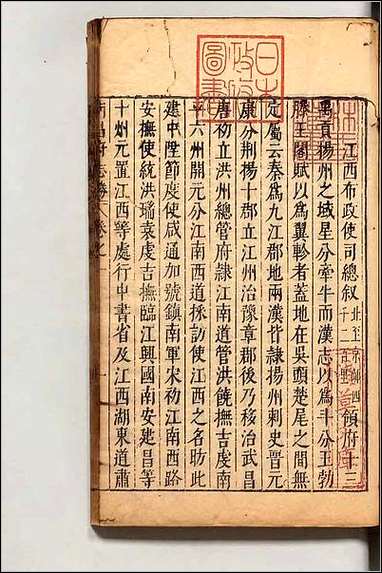 日本
政府
圖書
江西布政使司總叙 北至京師四千二百里 領府十三
禹貢揚州之域星分牽牛而漢志以為斗分王勃
滕王閣賦以為翼軫者蓋地在吳頭楚尾之間無
定屬云秦為九江郡地兩漢皆隸揚州刺史晉元
康分荆揚十郡立江州治豫章郡後乃移治武昌
唐初立洪州總管府隸江南道管洪饒撫吉虔南
平六州開元分江南西道採訪使江西之名昉此
建中陞節度使咸通加號鎮南軍宋初江南西路
安撫使統洪瑞袁虔吉撫臨江興國南安建昌等
十州元置江西等處行中書省及江西湖東道肅
南昌府志勝 卷之一